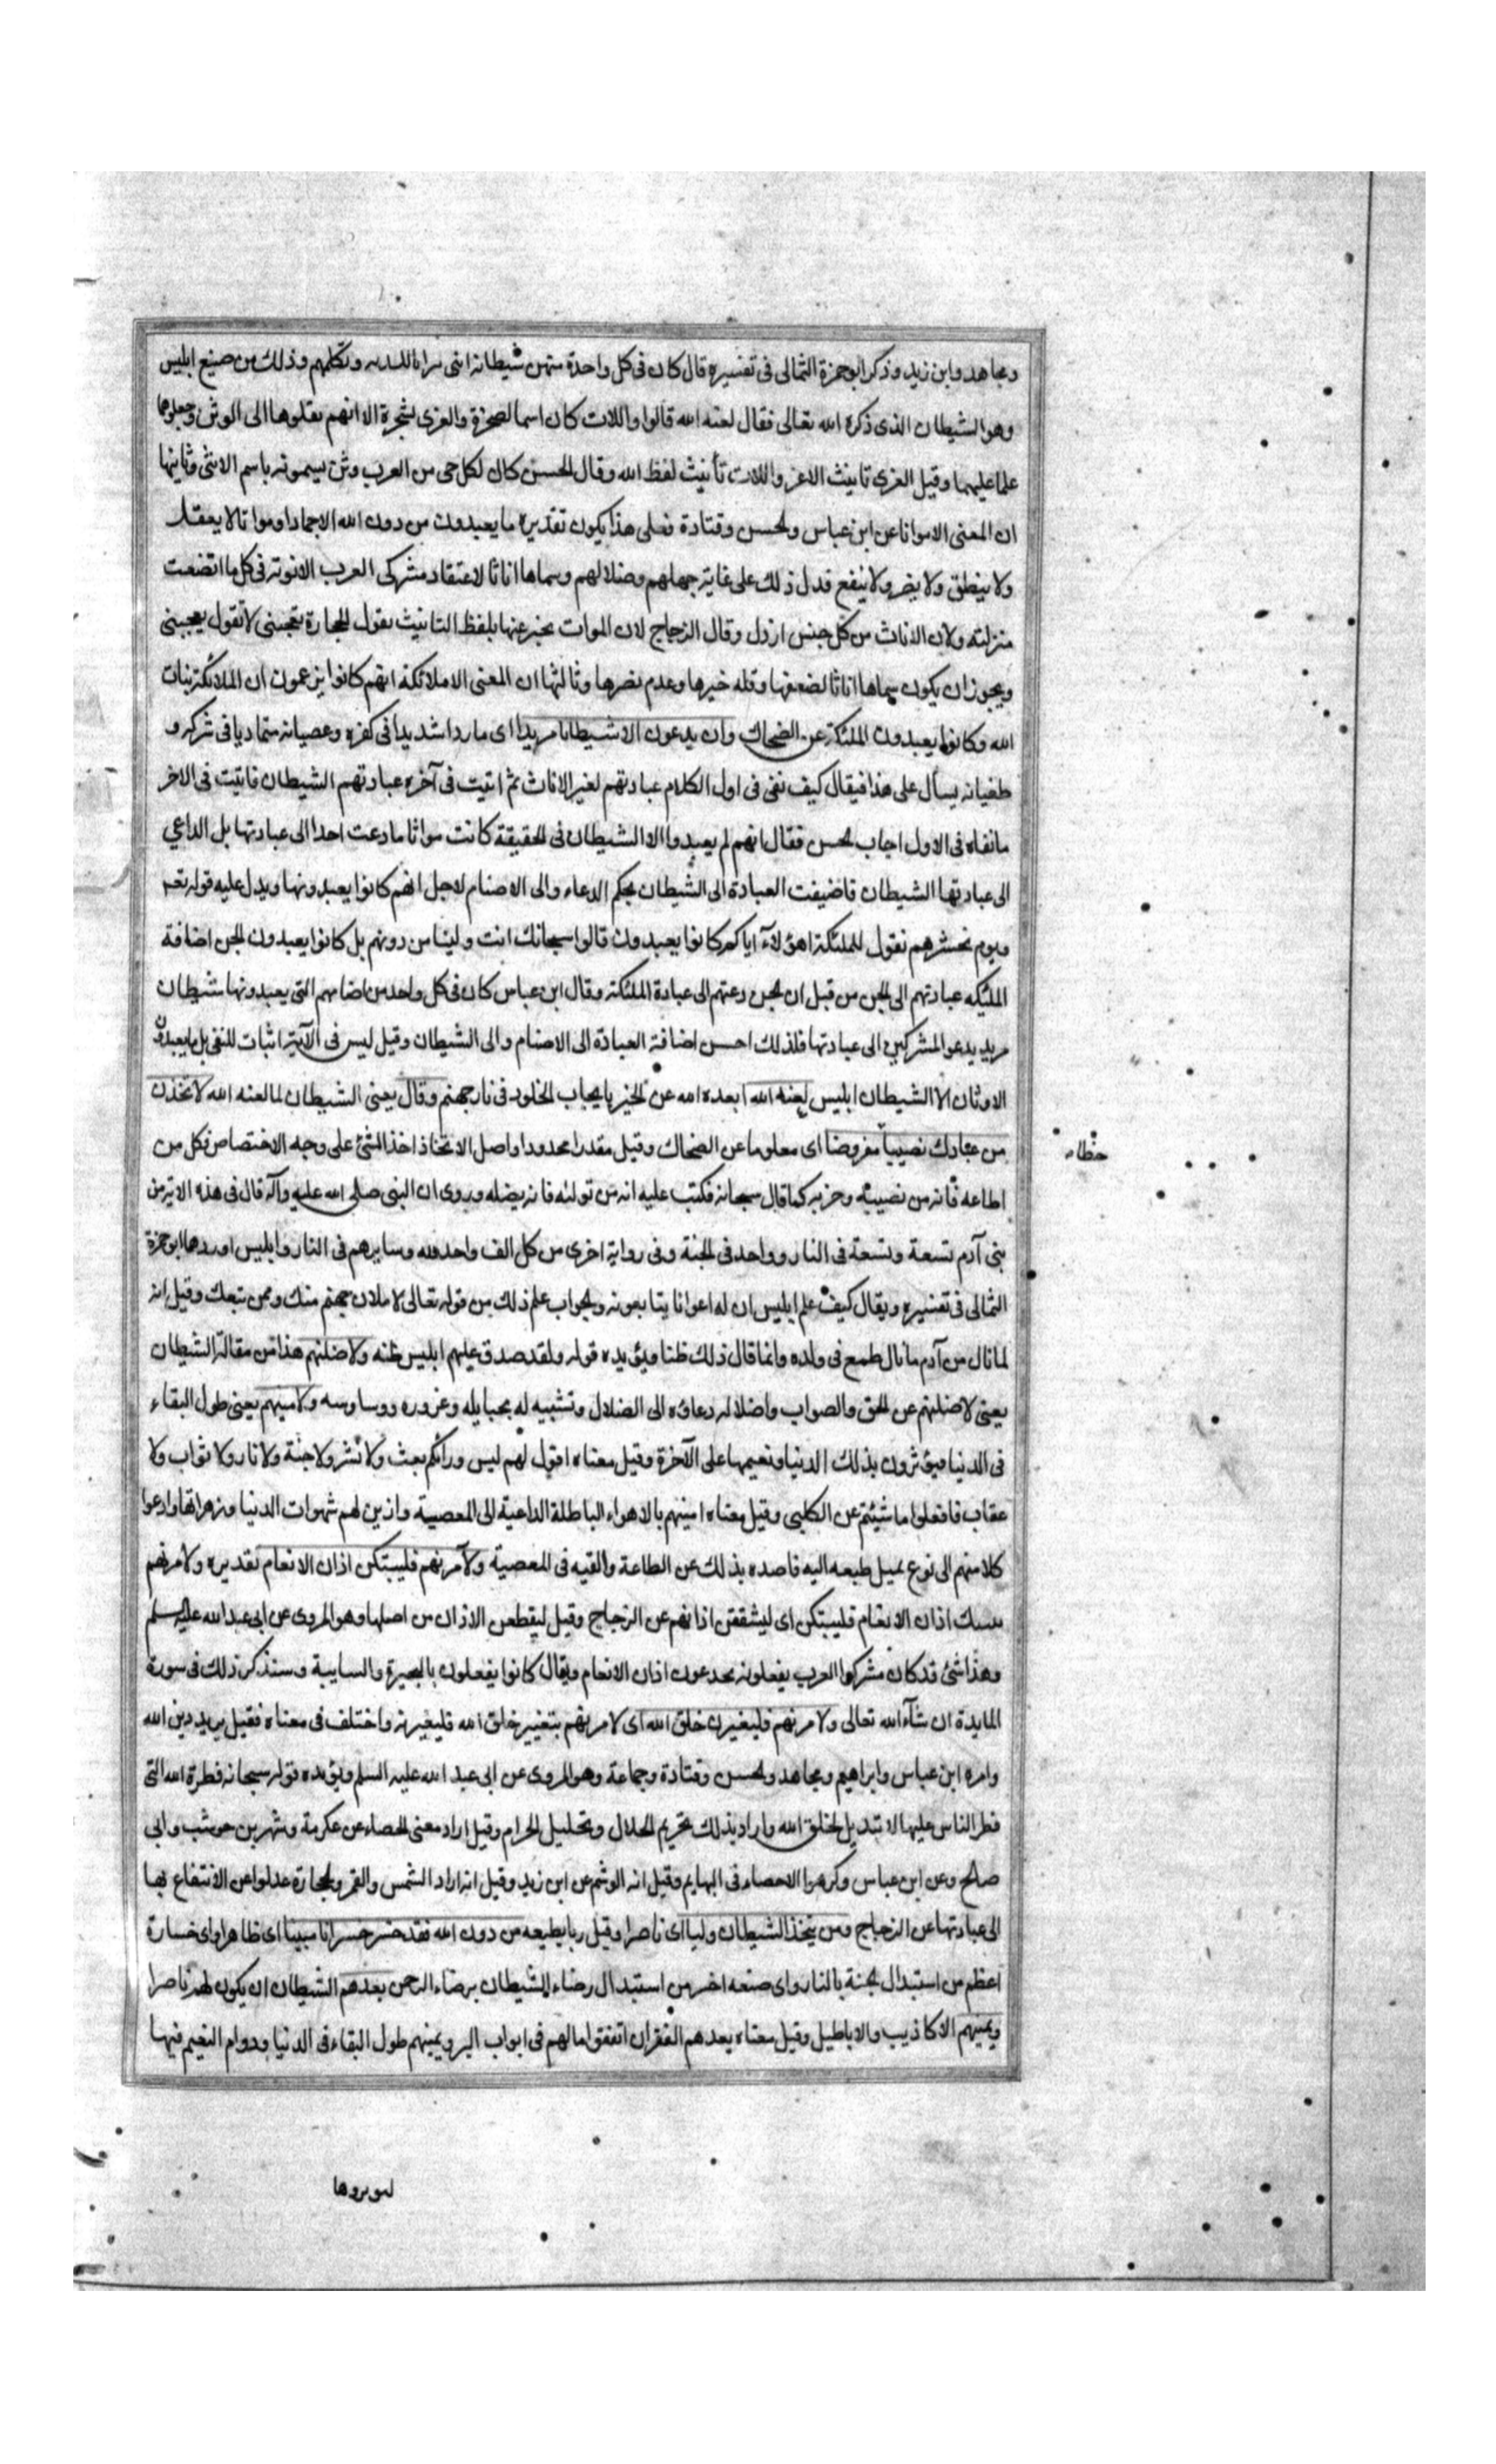 ومجاهد وابن زيد وذكر ابو حمزة الثمالى فى تفسيره قال كان فى كل واحدة منهن شيطانة انثى وتكلمهم وذلك من صنيع ابليس
وهو الشيطان الذى ذكره الله تعالى فقال لعنه الله قالوا واللات كان اسما لصخرة والعزى لشجرة الا انهم نقلوها الى الوثن وجعلوها
علما عليهما وقيل العزى تانيث الاعز واللات تأنيث لفظ الله وقال الحسن كان لكل حى من العرب وثن يسمونه باسم الانثى وثانيها
ان المعنى الا مواتا عن ابن عباس والحسن وقتادة فعلى هذا يكون تقديره ما يعبدون من دون الله الا جمادا ومواتا لا يعقل
ولا ينطق ولا يضر ولا ينفع فدل ذلك على غاية جهلهم وضلالهم وسماها اناثا لاعتقاد مشركى العرب الانوثة فى كل ما اتضعت
منزلته ولان الاناث من كل جنس ارذل وقال الزجاج لان الموات يخبر عنها بلفظ التانيث تقول الحجارة تعجبنى لا تقول يعجبنى
ويجوز ان يكون سماها اناثا لضعفها وقله خيرها وعدم نصرها وثالثها ان المعنى الا ملائكة انهم كانوا يزعمون ان الملائكة بنات
الله وكانوا يعبدون الملئكة عن الضحاك وان يدعون الا شيطانا مريدا اى ماردا شديدا فى كفره وعصيانه متماديا فى شركه و
طغيانه يسأل على هذا فيقال كيف نفى فى اول الكلام عبادتهم لغير الاناث ثم اثبت فى آخره عبادتهم الشيطان فاثبت فى الاخر
مانفاه فى الاول اجاب الحسن فقال انهم لم يعبدوا الا الشيطان فى الحقيقة كانت مواتا ما دعت احدا الى عبادتها بل الداعي
الى عبادتها الشيطان فاضيفت العبادة الى الشيطان بحكم الدعاء والى الاصنام لاجل انهم كانوا يعبدونها ويدل عليه قوله تعم
ويوم نحشرهم نقول للملئكة اهؤلآء اياكم كانوا يعبدون قالوا سبحانك انت ولينا من دونهم بل كانوا يعبدون الجن اضافة
الملئكه عبادتهم الى الجن من قبل ان الجن دعتهم الى عبادة الملئكة وقال ابن عباس كان فى كل واحد من اصنامهم التى يعبدونها شيطان
مريد يدعو المشركين الى عبادتها فلذلك احسن اضافة العبادة الى الاصنام والى الشيطان وقيل ليس فى الآية اثبات للنفى بل ما يعبدون
الاوثان الا الشيطان ابليس لعنه الله ابعده الله عن الخير بايجاب الخلود فى نار جهنم وقال يعنى الشيطان لما لعنه الله لاتخذن
من عبادك نصيبا مفروضا اى معلوما عن الضحاك وقيل مقدرا محدودا واصل الاتخاذ اخذ الشئ على وجه الاختصاص فكل من
اطاعه فانه من نصيبه وحزبه كما قال سبحانه فكتب عليه انه من تولاه فانه يضله وروى ان النبى صلى الله عليه وآله قال فى هذه الاية من
بنى آدم تسعة وتسعة فى النار وواحد فى الجنة وفى رواية اخرى من كل الف واحد لله وسايرهم فى النار وابليس اوردها ابو حمزة
الثمالى فى تفسيره ويقال كيف علم ابليس ان له اعوانا يتابعونه والجواب علم ذلك من قوله تعالى لاملان جهنم منك وممن تبعك وقيل انه
لما نال من آدم ما نال طمع فى ولده وانما قال ذلك ظنا ويؤيده قوله ولقد صدق عليهم ابليس ظنه ولاضلنهم هذا من مقالة الشيطان
يعنى لاضلنهم عن الحق والصواب واضلاله دعاؤه الى الضلال وتشبيه له بحبايله وغروره ووساوسه ولامنينهم يعنى طول البقاء
فى الدنيا فيؤثرون بذلك الدنيا ونعيمها على الآخرة وقيل معناه اقول لهم ليس ورائكم بعث ولا نشر ولا جنة ولا نار ولا ثواب ولا
عقاب فافعلوا ما شيئتم عن الكلبى وقيل معناه امنينهم بالاهواء الباطلة الداعية الى المعصية وازين لهم شهوات الدنيا وزهراتها وادعوا
كلا منهم الى نوع يميل طبعه اليه فاصده بذلك عن الطاعة والقيه فى المعصية ولآمرنهم فليبتكن اذان الانعام تقديره ولامرنهم
اذان الانعام فليبتكن اى ليشققن اذانهم عن الزجاج وقيل ليقطعن الاذان من اصلها وهو المروى عن ابى عبد الله عليه السلم
وهذا شئ قد كان مشركوا العرب يفعلونه يجدعون اذان الانعام ويقال كانوا يفعلون بالبحيرة والسايبة وسنذكر ذلك فى سورة
المايدة ان شآء الله تعالى ولامرنهم فليغيرن خلق الله اى لامرنهم بتغيير خلق الله فليغيرنه واختلف فى معناه فقيل يريد دين الله
وامره ابن عباس وابراهيم ومجاهد والحسن وقتادة وجماعة وهو المروى عن ابى عبد الله عليه السلم ويؤيده قوله سبحانه فطرة الله التى
فطر الناس عليها لا تبديل لخلق الله واراد بذلك تحريم الحلال وتحليل الحرام وقيل اراد معنى الخصاء عن عكرمة وشهر بن حوشب وابى
صالح وعن ابن عباس وكرهوا الاخصاء فى البهايم وقيل انه الوشم عن ابن زيد وقيل انه اراد الشمس والقمر والحجارة عدلوا عن الانتفاع بها
الى عبادتها عن الزجاج ومن يتخذ الشيطان وليا اى ناصرا وقيل ربا يطيعه من دون الله فقد خسر خسرانا مبينا اى ظاهرا واى خسارة
اعظم من استبدال الجنة بالنار واى صنعه اخسر من استبدال رضاء الشيطان برضاء الرحمن يعدهم الشيطان ان يكون لهم ناصرا
ويمنيهم الاكاذيب والاباطيل وقيل معناه يعدهم الفقر ان انفقوا مالهم فى ابواب البر ويمنيهم طول البقاء فى الدنيا ودوام النعيم فيها
ليوثروها